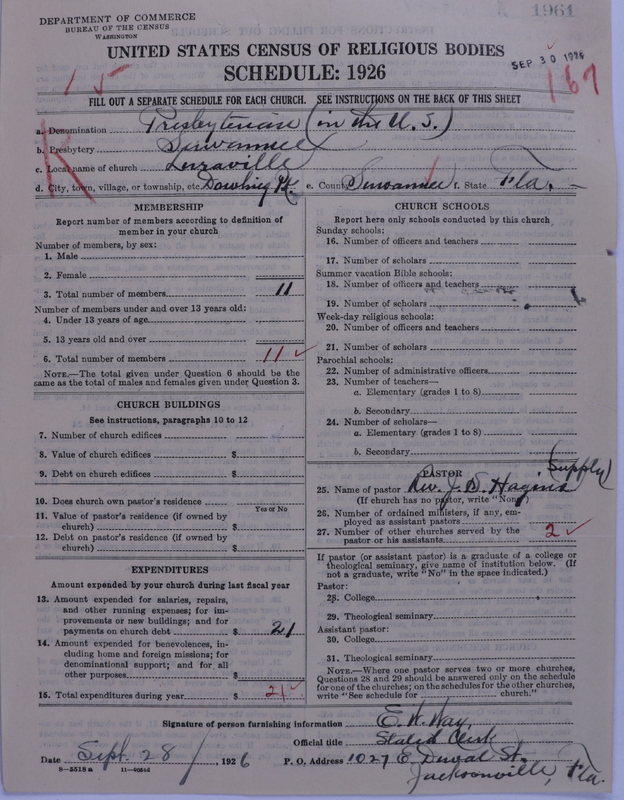 DEPARTMENT OF COMMERCE
BUREAU OF THE CENSUS
WASHINGTON
1961
UNITED STATES CENSUS OF RELIGIOUS BODIES
SEP 30 1926
SCHEDULE: 1926
15
167
FILL OUT A SEPARATE SCHEDULE FOR EACH CHURCH. SEE INSTRUCTIONS ON THE BACK OF THIS SHEET
a. Denomination Presbyterian (in the U.S.)
b. Presbytery Suwannee
c. Local name of church Luraville
d. City, town, village, or township, etc. Dowling Pk e. County Suwannee f. State Fla.
MEMBERSHIP
Report number of members according to definition of
member in your church
Number of members, by sex:
1. Male
2. Female
3. Total number of members 11
Number of members under and over 13 years old:
4. Under 13 years of age
5. 13 years old and over
6. Total number of members 11 ✓
NOTE.—The total given under Question 6 should be
same as the total of males and females given under Question 3.
CHURCH BUILDINGS
See instructions, paragraphs 10 to 12
7. Number of church edifices
8. Value of church edifices $
9. Debt on church edifices $
10. Does church own pastor's residence
Yes or No
11. Value of pastor's residence (if owned by
church) $
12. Debt on pastor's residence (if owned by
church) $
EXPENDITURES
Amount expended by your church during last fiscal year
13. Amount expended for salaries, repairs,
and other running expenses; for im-
provements or new buildings; and for
payments on church debt $ 21
14. Amount expended for benevolences, in-
cluding home and foreign missions; for
denominational support; and for all
other purposes $
15. Total expenditures during year $ 21 ✓
CHURCH SCHOOLS
Report here only schools conducted by this church
Sunday schools:
16. Number of officers and teachers
17. Number of scholars
Summer vacation Bible schools:
18. Number of officers and teachers
19. Number of scholars
Week-day religious schools:
20. Number of officers and teachers
21. Number of scholars
Parochial schools:
22. Number of administrative officers
23. Number of teachers—
a. Elementary (grades 1 to 8)
b. Secondary
24. Number of scholars—
a. Elementary (grades 1 to 8)
b. Secondary
PASTOR (Supply)
25. Name of pastor Rev. J. S. Hagins
(If church has no pastor, write "None")
26. Number of ordained ministers, if any, em-
ployed as assistant pastors
27. Number of other churches served by the
pastor or his assistants 2 ✓
If pastor (or assistant pastor) is a graduate of a college or
theological seminary, give name of institution below. (If
not a graduate, write "No" in the space indicated.)
Pastor:
28. College
29. Theological seminary
Assistant pastor:
30. College
31. Theological seminary
NOTE.—Where one pastor serves two or more churches,
Questions 28 and 29 should be answered only on the schedule
for one of the churches; on the schedules for the other churches,
write "See schedule for church."
Signature of person furnishing information E. W. Way,
Official title Stated Clerk
Date Sept. 28, 1926 P. O. Address 1027 E. Duval St.
Jacksonville, Fla.
8—5518a